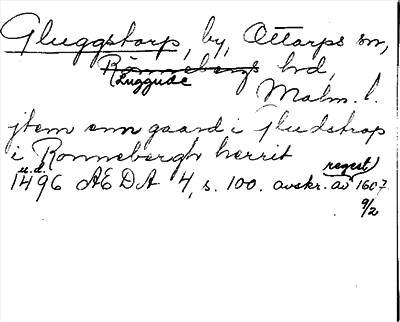 Gluggstorp, by, Ottarps sn,
Rönnebergs hrd,
Luggude
Malm. l.
jtem em gaard i Gludstrop
i Ronnebergh herrit
u.d. regest)
1496 AEDA 4, s. 100. avskr. av 1607.
9/2